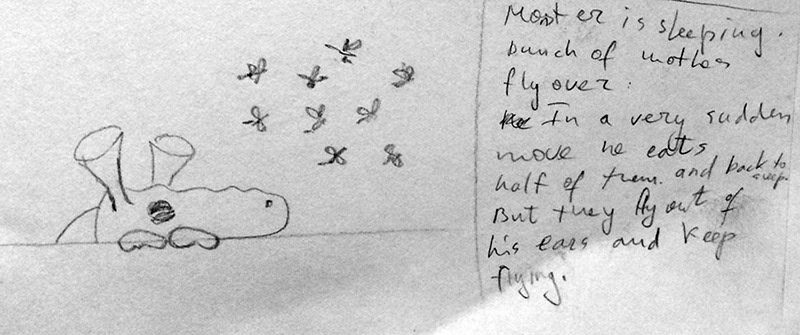 Monster is sleeping.
bunch of mothes
fly over.
In a very sudden
move he eats
half of them. and back to sleep.
But they fly out of
his ears and keep
flying.